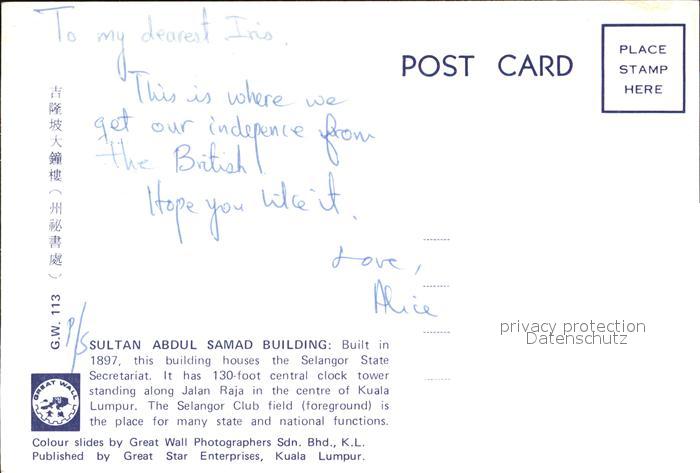 To my dearest Iris.
This is where we
get our indepence from
the British!
Hope you like it.
Love,
Alice
P/S
POST CARD
PLACE
STAMP
HERE
吉隆坡大鐘樓(州秘書處)
G.W. 113
SULTAN ABDUL SAMAD BUILDING: Built in
1897, this building houses the Selangor State
Secretariat. It has 130-foot central clock tower
standing along Jalan Raja in the centre of Kuala
Lumpur. The Selangor Club field (foreground) is
the place for many state and national functions.
GREAT WALL
Colour slides by Great Wall Photographers Sdn. Bhd., K.L.
Published by Great Star Enterprises, Kuala Lumpur.
privacy protection
Datenschutz